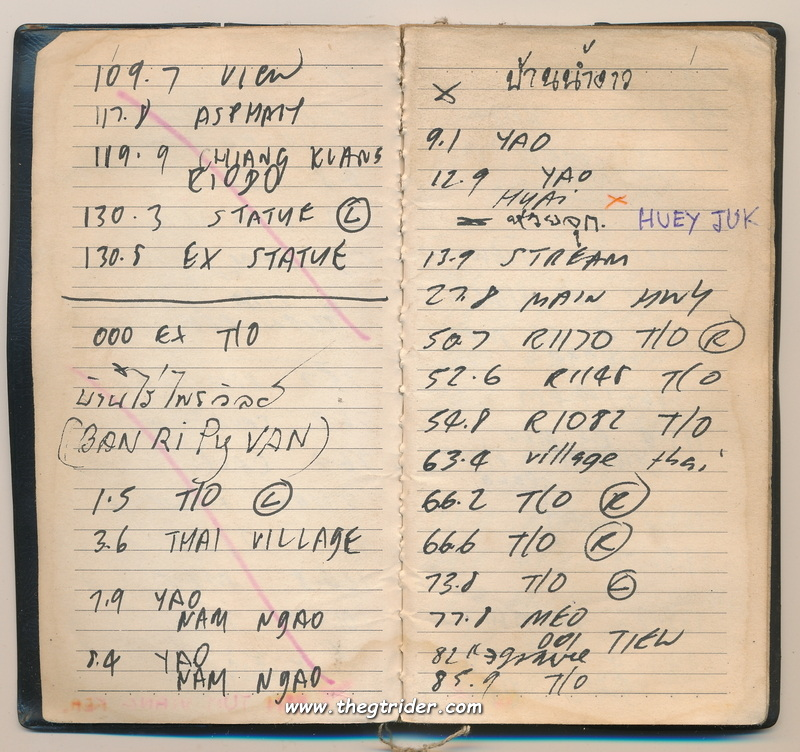 109.7 VIEW
117.8 ASPHALT
119.9 CHIANG KLANG
130.3 STATUE (L)
130.8 EX STATUE
000 EX T/O
(BAN RI Py VAN)
1.5 T/O (L)
3.6 THAI VILLAGE
7.9 YAO
NAM NgAO
8.4 YAO
NAM NgAO
x บ้านน้ำงาว
9.1 YAO
12.9 YAO
x
HUEY JUK
13.9 STREAM
27.8 MAIN HWY
50.7 R1170 T/O (R)
52.6 R1148 T/O
54.8 R1082 T/O
63.4 village thai
66.2 T/O (R)
66.6 T/O (R)
73.8 T/O (L)
77.8 MEO
DOI TIEW
82
85.9 T/O
www.thegtrider.com